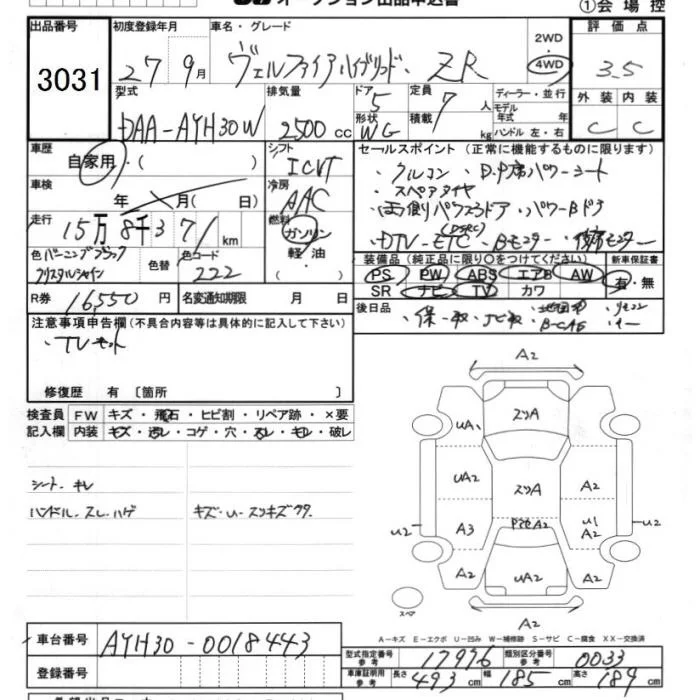 オークション出品申込書
①会場控
出品番号
3031
初度登録年月
27 9月
車名・グレード
ヴェルファイアハイブリッド ZR
2WD
・
4WD
評価点
3.5
型式
DAA-AYH30W
排気量
2500cc
ドア
5
形状
WG
定員
7人
積載
kg
ディーラー・並行
モデル
年式 年
ハンドル 左・右
外装 内装
C C
車歴
自家用・( )
シフト
ICVT
セールスポイント (正常に機能するものに限ります)
車検
年 月( 日)
冷房
AAC
・クルコン ・D.P席パワーシート
・スペアタイヤ
・両側パワースドア ・パワーBドア
走行
15万8千371km
燃料
ガソリン
・
軽油
( )
(DSRC)
・DTV-ETC・Bモニター
色 バーニングブラック
クリスタルシャイン
色替
色コード
222
装備品 (純正品に限り〇をつけてください)
新車保証書
PS PW ABS エアB AW
有・無
SR ナビ TV カワ
R券 16,550円
名変通知期限 月 日
後日品
・保-取、ナビ取
・B-CAS
・リモコン
注意事項申告欄 (不具合内容等は具体的に記入して下さい)
・TVキット
修復歴 有 〔箇所 〕
検査員
記入欄
FW キズ・飛石・ヒビ割・リペア跡・×要
内装 キズ・汚レ・コゲ・穴・スレ・キレ・破レ
シート、キレ
ハンドル、スレ、ハゲ
キズ・U・スリキズ
A2
スリA
UA
A2
UA2
スリA
A2
A3
A2
U1
A2
U2
U2
A2
UA2
A2
スペア
A2
A-キズ E-エクボ U-凹み W-補修跡 S-サビ C-腐食 XX-交換済
車台番号
AYH30-0018443
登録番号
型式指定番号
参考
17996
類別区分番号
参考
0033
車庫証明用
参考
長さ 493cm 幅 185cm 高さ 189cm